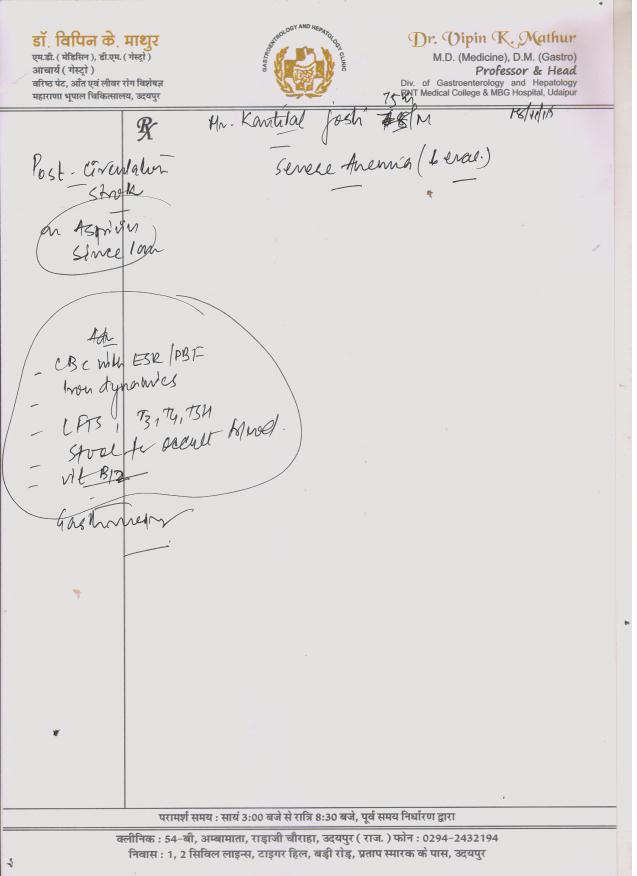 डॉ. विपिन के. माथुर
एम.डी. ( मेडिसिन ), डी.एम. ( गेस्ट्रो )
आचार्य ( गेस्ट्रो )
वरिष्ठ पेट, आँत एवं लीवर रोग विशेषज्ञ
महाराणा भूपाल चिकित्सालय, उदयपुर
GASTROENTROLOGY AND HEPATOLOGY CLINIC
Dr. Vipin K. Mathur
M.D. (Medicine), D.M. (Gastro)
Professor & Head
Div. of Gastroenterology and Hepatology
RNT Medical College & MBG Hospital, Udaipur
Rx
Mr. Kantilal Joshi 75 /M
Severe Anemia
Post-Circulation
Stroke
on Aspirin
since
Adv
- CBC with ESR/PBF
- Iron dynamics
- LFTS, T3, T4, TSH
- Stool for occult blood.
- Vit B12
परामर्श समय : सायं 3:00 बजे से रात्रि 8:30 बजे, पूर्व समय निर्धारण द्वारा
क्लीनिक : 54-बी, अम्बामाता, राड़ाजी चौराहा, उदयपुर ( राज. ) फोन : 0294-2432194
निवास : 1, 2 सिविल लाइन्स, टाइगर हिल, बड़ी रोड़, प्रताप स्मारक के पास, उदयपुर